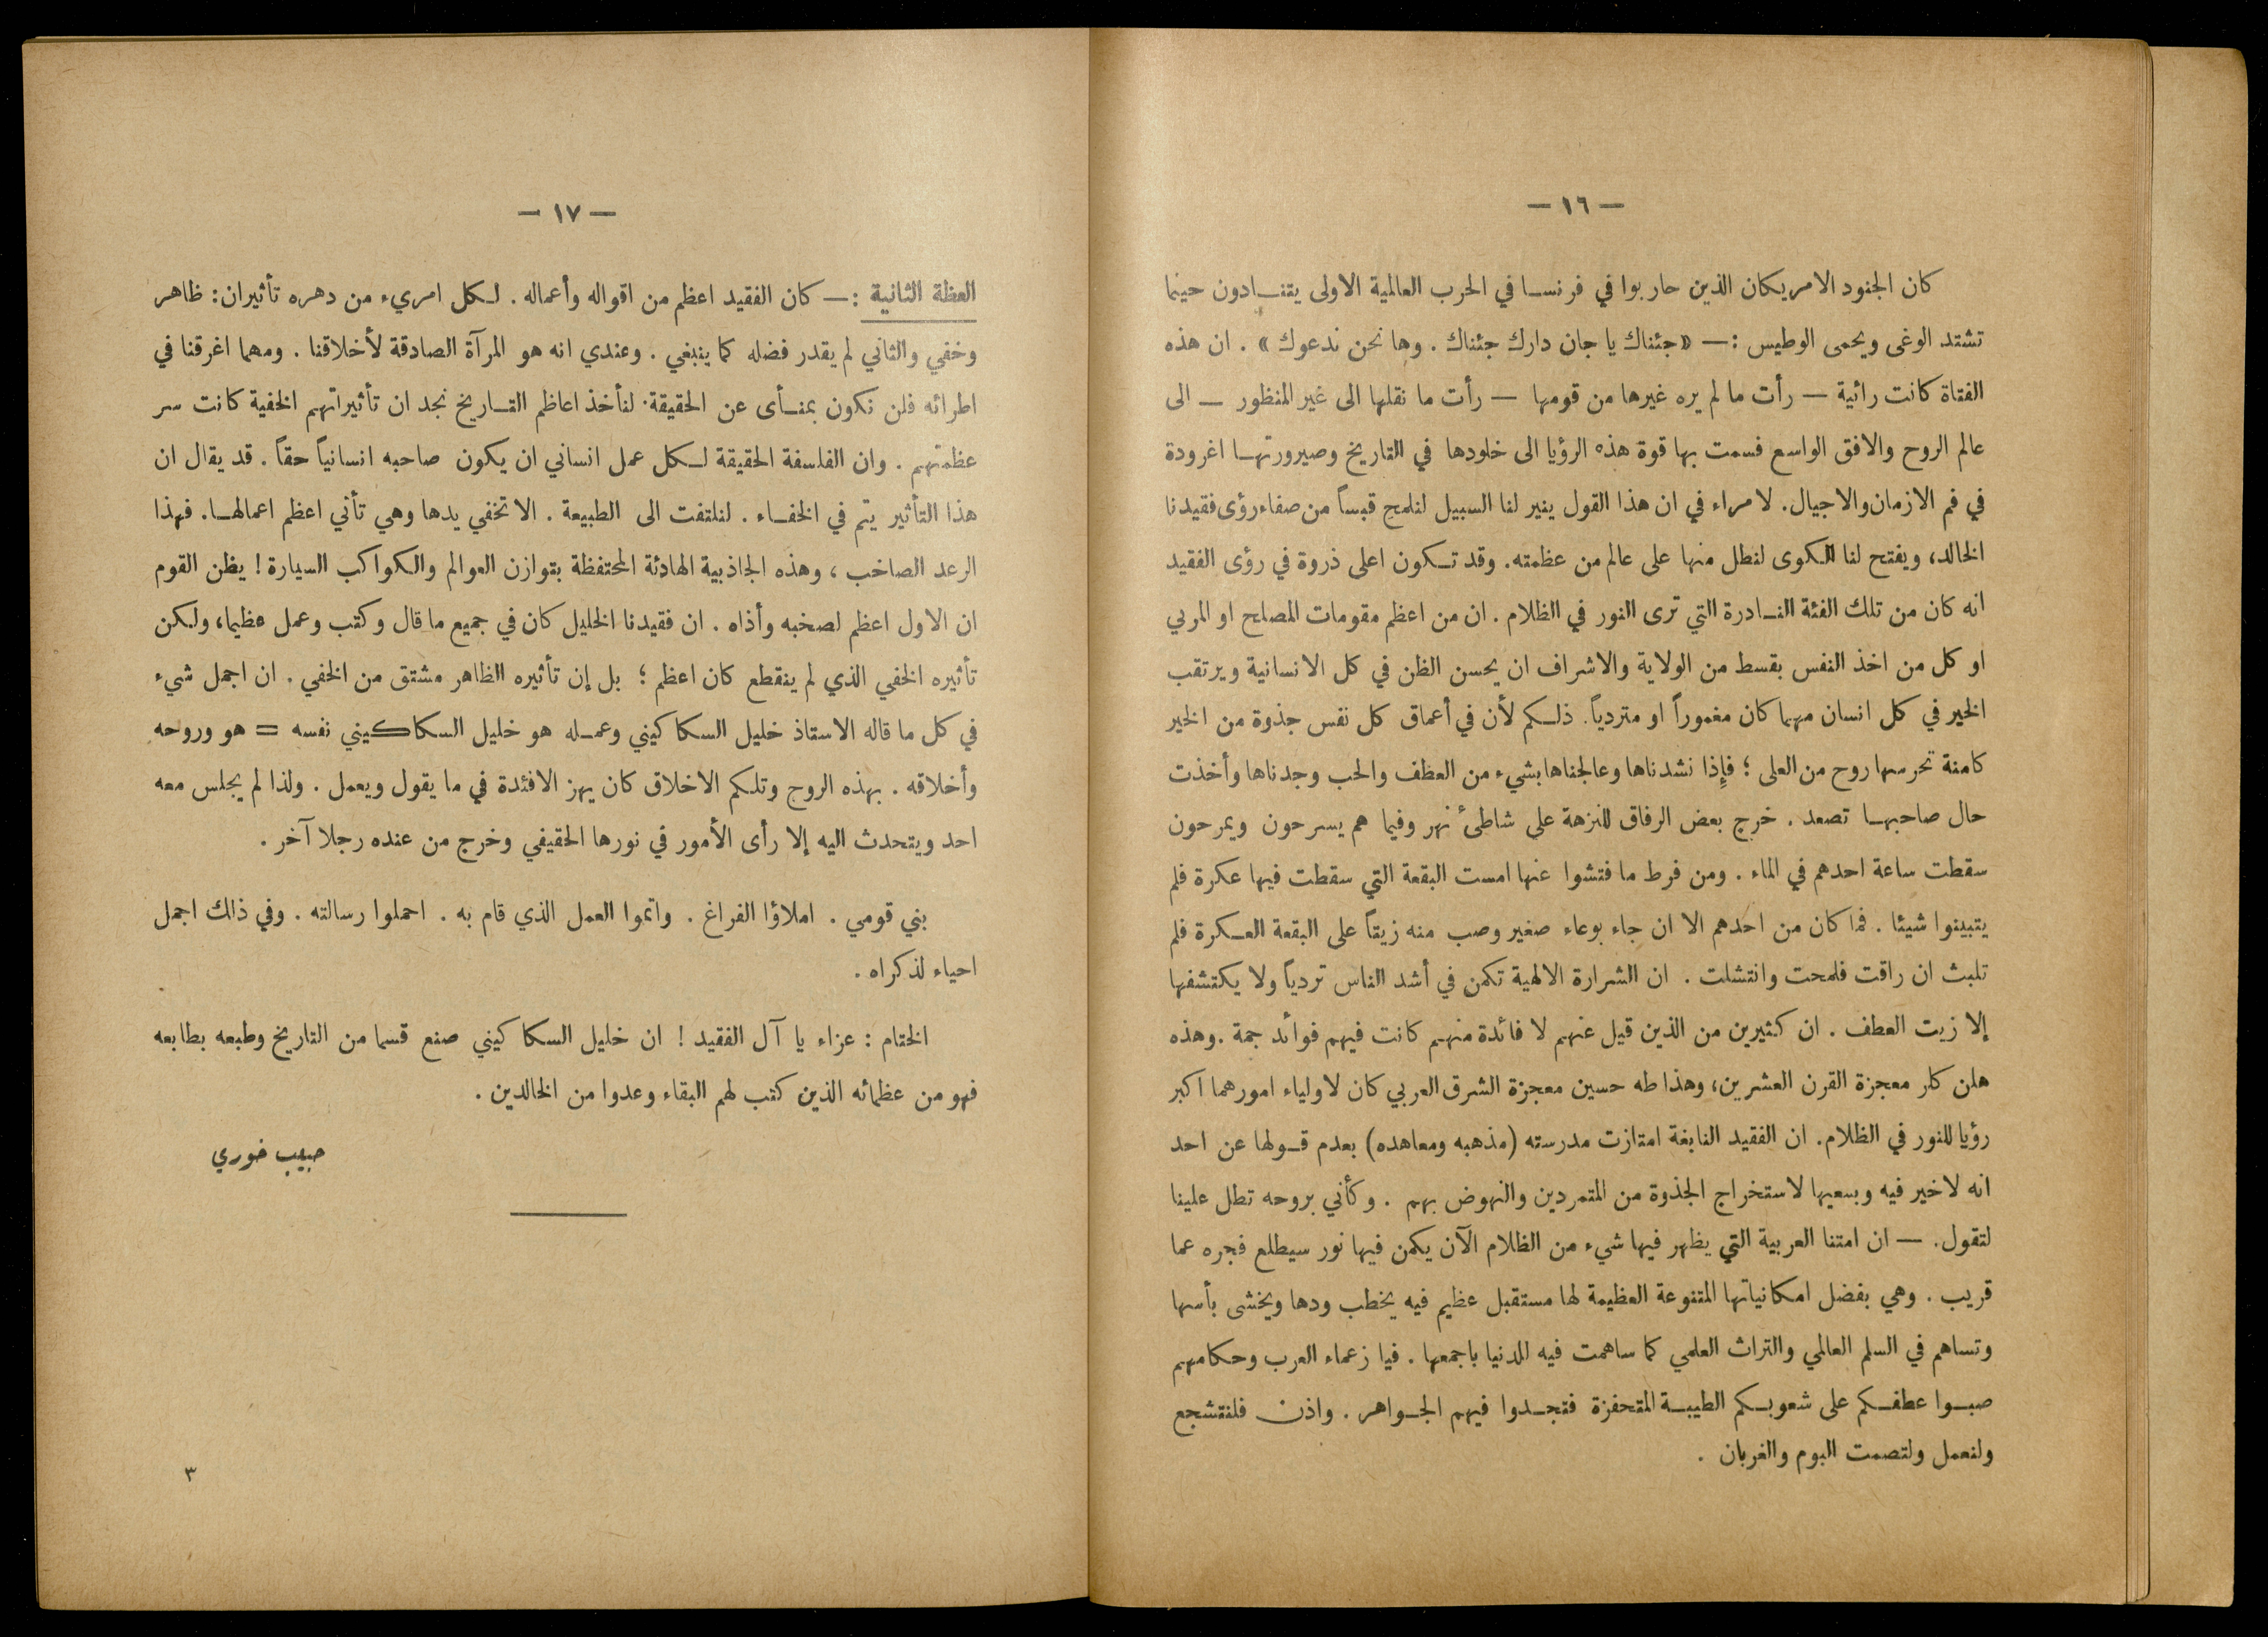 — ١٦ —
كان الجنود الامريكان الذين حاربوا في فرنسا في الحرب العالمية الاولى يتنادون حينما
تشتد الوغى ويحمى الوطيس : — «جئناك يا جان دارك جئناك . وها نحن ندعوك» . ان هذه
الفتاة كانت رائية — رأت ما لم يره غيرها من قومها — رأت ما نقلها الى غير المنظور — الى
عالم الروح والافق الواسع فسمت بها قوة هذه الرؤيا الى خلودها في التاريخ وصيرورتها اغرودة
في فم الازمان والاجيال. لا مراء في ان هذا القول ينير لنا السبيل لنلمح قبساً من صفاء رؤى فقيدنا
الخالد، ويفتح لنا الكوى لنطل منها على عالم من عظمته. وقد تكون اعلى ذروة في رؤى الفقيد
انه كان من تلك الفئة النادرة التي ترى النور في الظلام . ان من اعظم مقومات المصلح او المربي
او كل من اخذ النفس بقسط من الولاية والاشراف ان يحسن الظن في كل الانسانية ويرتقب
الخير في كل انسان مهما كان مغموراً او متردياً. ذلكم لأن في أعماق كل نفس جذوة من الخير
كامنة تحرسها روح من العلى ؛ فإذا نشدناها وعالجناها بشيء من العطف والحب وجدناها وأخذت
حال صاحبها تصعد . خرج بعض الرفاق للنزهة على شاطئ نهر وفيما هم يسرحون ويمرحون
سقطت ساعة احدهم في الماء . ومن فرط ما فتشوا عنها امست البقعة التي سقطت فيها عكرة فلم
يتبينوا شيئا . فما كان من احدهم الا ان جاء بوعاء صغير وصب منه زيتاً على البقعة العكرة فلم
تلبث ان راقت فلمحت وانتشلت . ان الشرارة الالهية تكمن في أشد الناس تردياً ولا يكتشفها
إلا زيت العطف . ان كثيرين من الذين قيل عنهم لا فائدة منهم كانت فيهم فوائد جمة . وهذه
هلن كلر معجزة القرن العشرين، وهذا طه حسين معجزة الشرق العربي كان لاولياء امورهما اكبر
رؤيا للنور في الظلام. ان الفقيد النابغة امتازت مدرسته (مذهبه ومعاهده) بعدم قولها عن احد
انه لا خير فيه وبسعيها لاستخراج الجذوة من المتمردين والنهوض بهم . وكأني بروحه تطل علينا
لتقول. — ان امتنا العربية التي يظهر فيها شيء من الظلام الآن يكمن فيها نور سيطلع فجره عما
قريب . وهي بفضل امكانياتها المتنوعة العظيمة لها مستقبل عظيم فيه يخطب ودها ويخشى بأسها
وتساهم في السلم العالمي والتراث العلمي كما ساهمت فيه الدنيا باجمعها . فيا زعماء العرب وحكامهم
صبوا عطفكم على شعوبكم الطيبة المتحفزة فتجدوا فيهم الجواهر . واذن فلنتشجع
ولنعمل ولتصمت البوم والغربان .
— ١٧ —
العظة الثانية :— كان الفقيد اعظم من اقواله وأعماله . لكل امريء من دهره تأثيران: ظاهر
وخفي والثاني لم يقدر فضله كما ينبغي . وعندي انه هو المرآة الصادقة لأخلاقنا . ومهما اغرقنا في
اطرائه فلن نكون بمنأى عن الحقيقة. لنأخذ اعاظم التاريخ نجد ان تأثيراتهم الخفية كانت سر
عظمتهم . وان الفلسفة الحقيقة لكل عمل انساني ان يكون صاحبه انسانياً حقاً . قد يقال ان
هذا التأثير يتم في الخفاء . لنلتفت الى الطبيعة . الا تخفي يدها وهي تأتي اعظم اعمالها. فهذا
الرعد الصاخب ، وهذه الجاذبية الهادئة المحتفظة بتوازن العوالم والكواكب السيارة ! يظن القوم
ان الاول اعظم لصخبه وأذاه . ان فقيدنا الخليل كان في جميع ما قال وكتب وعمل عظيما، ولكن
تأثيره الخفي الذي لم ينقطع كان اعظم ؛ بل إن تأثيره الظاهر مشتق من الخفي . ان اجمل شيء
في كل ما قاله الاستاذ خليل السكاكيني وعمله هو خليل السكاكيني نفسه = هو وروحه
وأخلاقه . بهذه الروح وتلكم الاخلاق كان يهز الافئدة في ما يقول ويعمل . ولذا لم يجلس معه
احد ويتحدث اليه إلا رأى الأمور في نورها الحقيقي وخرج من عنده رجلا آخر .
بني قومي . املاؤا الفراغ . واتموا العمل الذي قام به . احملوا رسالته . وفي ذالك اجمل
احياء لذكراه .
الختام : عزاء يا آل الفقيد ! ان خليل السكاكيني صنع قسما من التاريخ وطبعه بطابعه
فهو من عظمائه الذين كتب لهم البقاء وعدوا من الخالدين .
حبيب خوري
٣